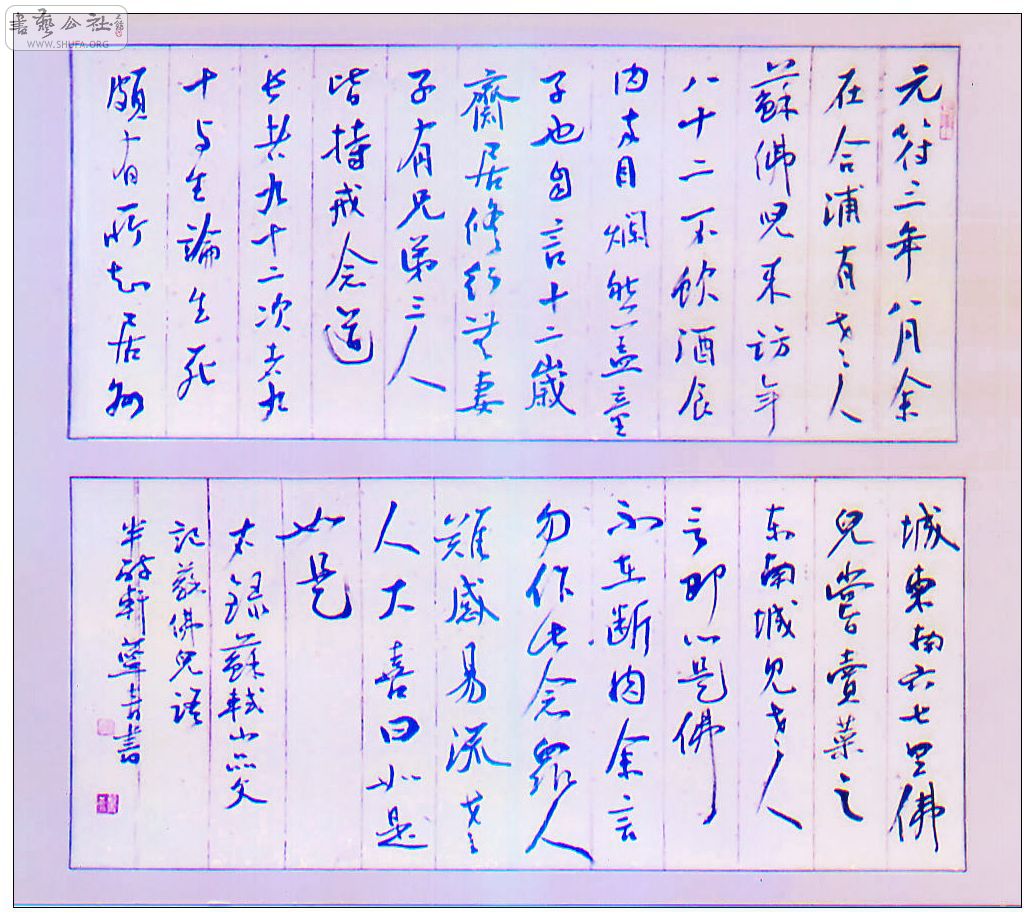 書藝公社
WWW.SHUFA.ORG
元符三年八月余
在合浦有老人
蘇佛兒来訪年
八十二不飲酒食
肉两目爛然盖童
子也自言十二歲
齋居修行無妻
子有兄弟三人
皆持戒念道
长者九十二次者九
十与生論生死
頗有所知居州
城東南六七里佛
兒嘗賣菜之
东南城見老人
言即心是佛
不在断肉余言
勿作此念眾人
難感易流老
人大喜曰如是
如是
右録蘇軾小品文
記蘇佛兒語
半軒青書